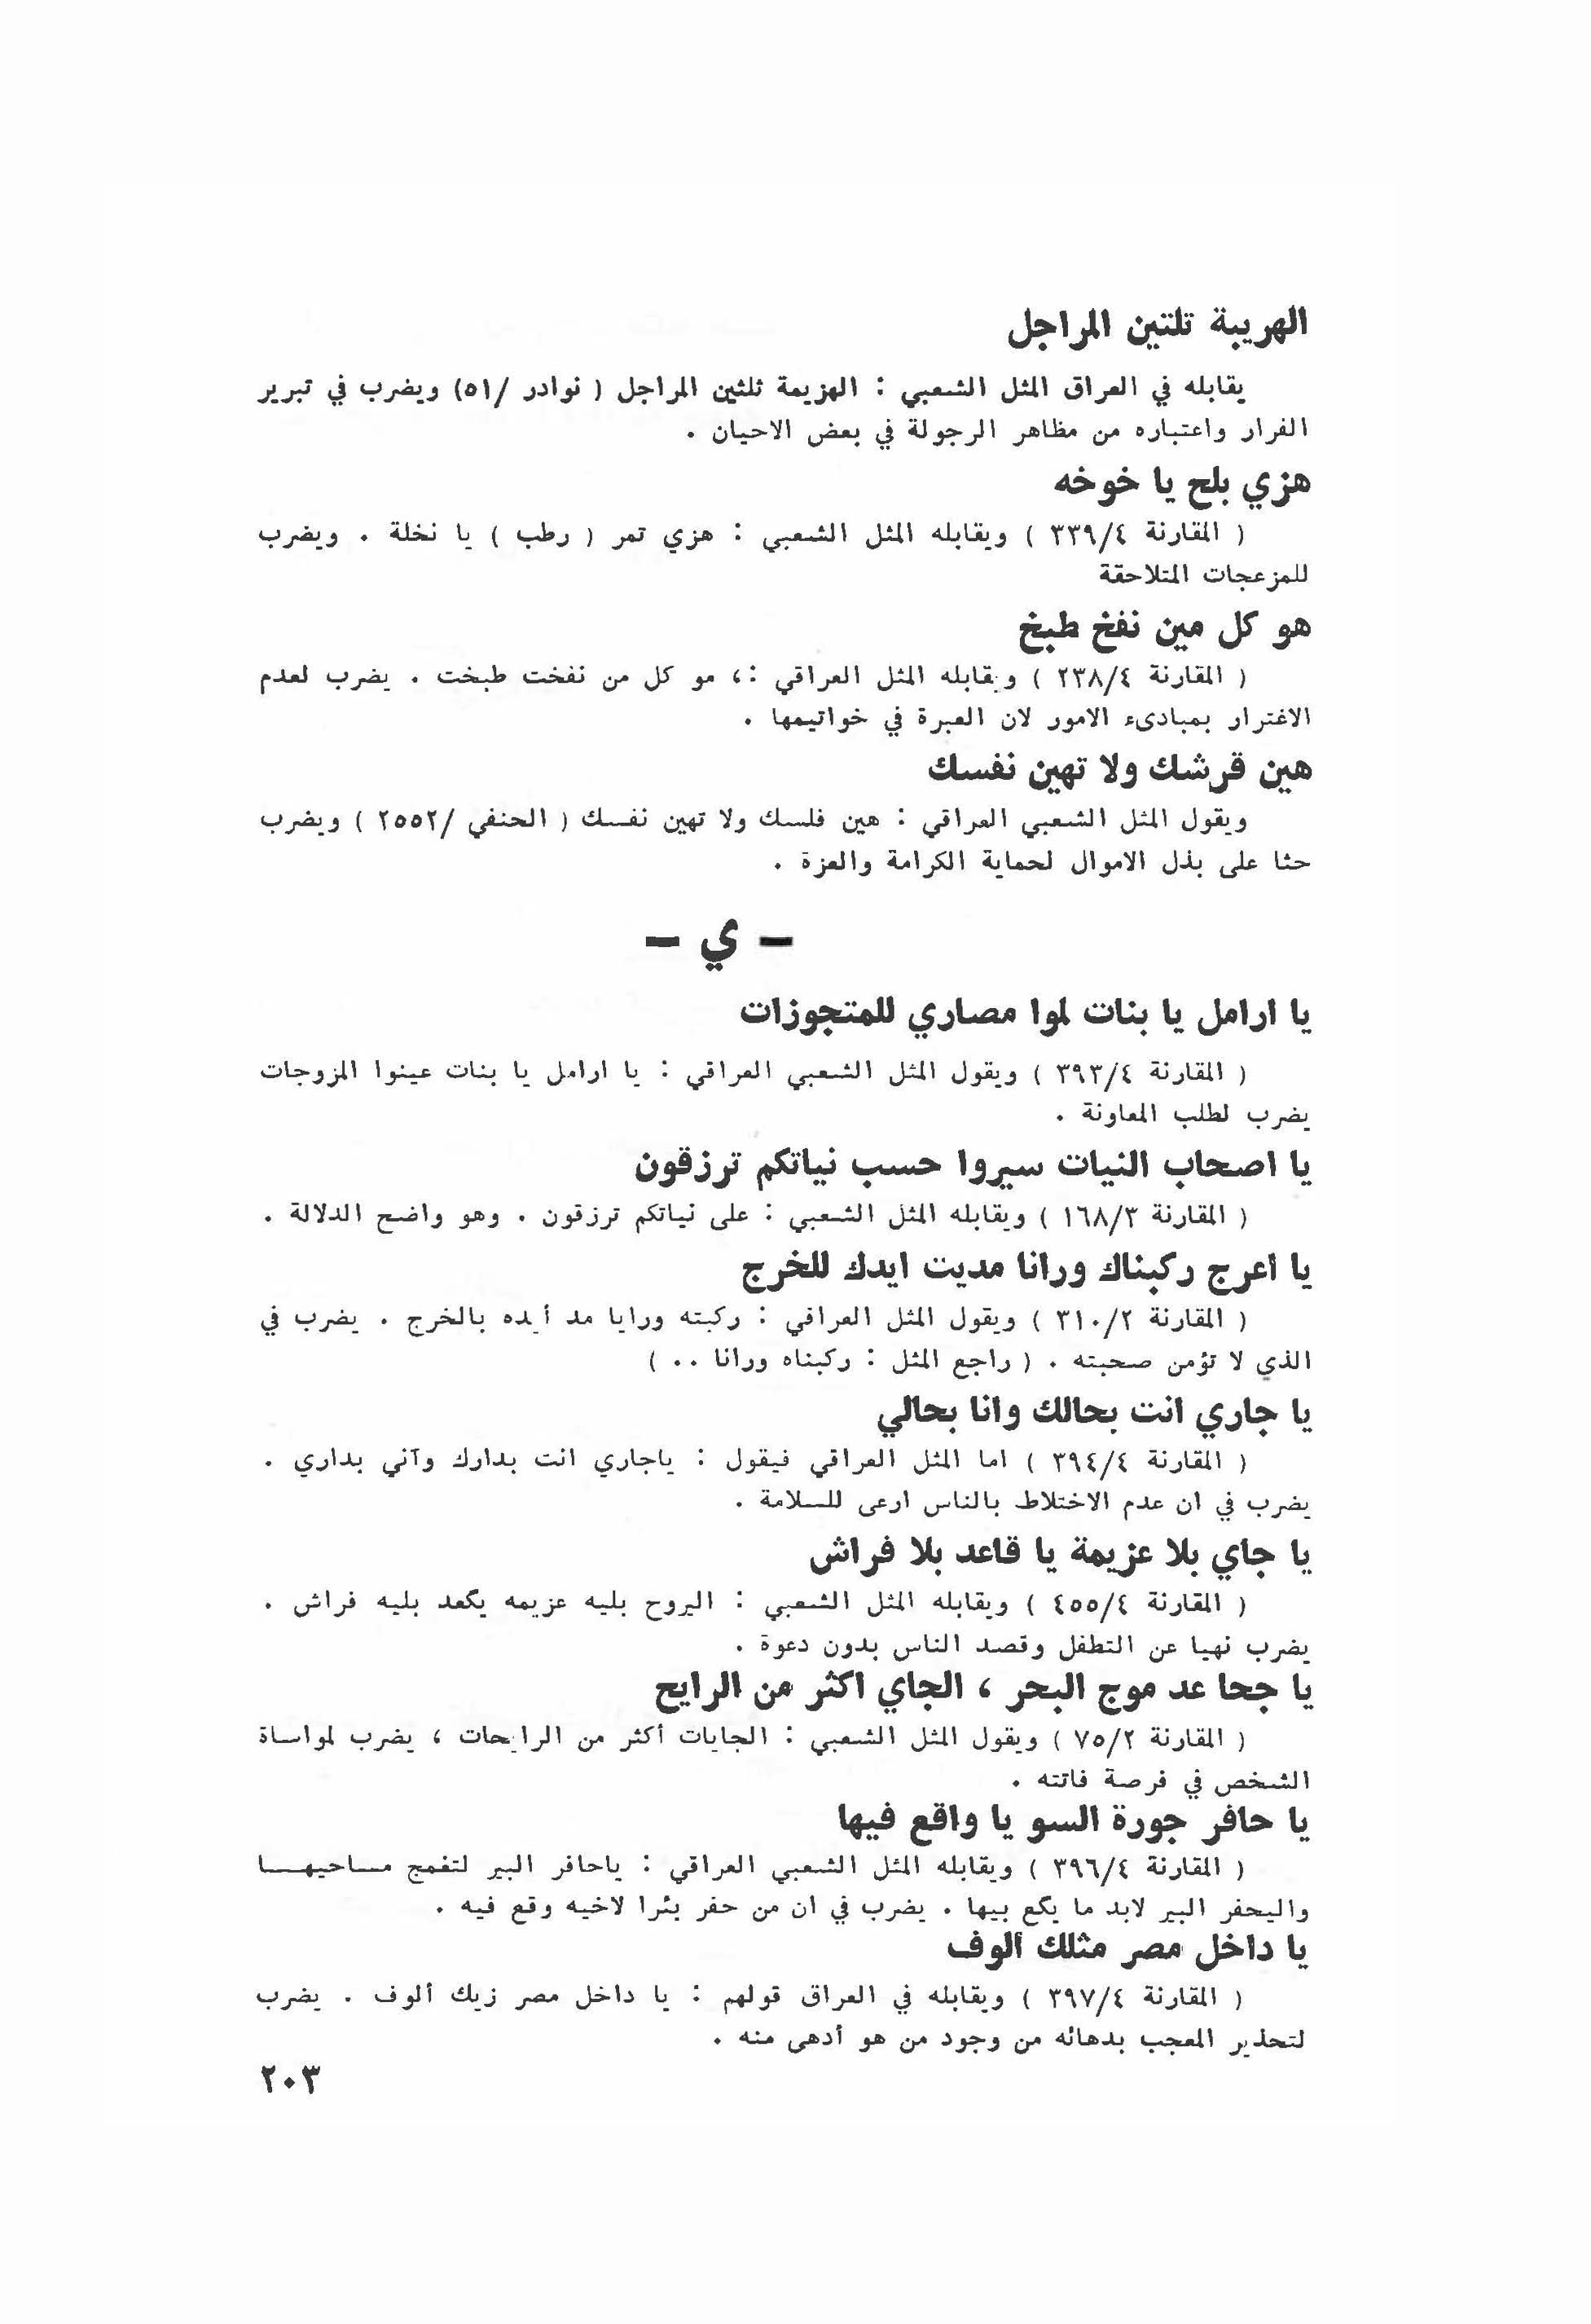 الهريبة تلتين المراجل
يقابله في العراق المثل الشعبي : الهزيمة ثلثين المراجل ( نوادر /٥١) ويضرب في تبرير
الفرار واعتباره من مظاهر الرجولة في بعض الاحيان .
هزي بلح يا خوخه
( المقارنة ٣٣٩/٤ ) ويقابله المثل الشعبي : هزي تمر ( رطب ) يا نخلة . ويضرب
للمزعجات المتلاحقة
هو كل مين نفخ طبخ
( المقارنة ٢٣٨/٤ ) ويقابله المثل العراقي :، مو كل من نفخت طبخت . يضرب لعدم
الاغترار بمبادىء الامور لان العبرة في خواتيمها .
هين قرشك ولا تهين نفسك
ويقول المثل الشعبي العراقي : هين فلسك ولا تهين نفسك ( الحنفي /٢٥٥٢ ) ويضرب
حثا على بذل الاموال لحماية الكرامة والعزة .
– ي –
يا ارامل يا بنات لموا مصاري للمتجوزات
( المقارنة ٣٩٣/٤ ) ويقول المثل الشعبي العراقي : يا ارامل يا بنات عينوا المزوجات
يضرب لطلب المعاونة .
يا اصحاب النيات سيروا حسب نياتكم ترزقون
( المقارنة ١٦٨/٣ ) ويقابله المثل الشعبي : على نياتكم ترزقون . وهو واضح الدلالة .
يا اعرج ركبناك ورانا مديت ايدك للخرج
( المقارنة ٣١٠/٢ ) ويقول المثل العراقي : ركبته ورايا مد أيده بالخرج . يضرب في
الذي لا تؤمن صحبته . ( راجع المثل : ركبناه ورانا .. )
يا جاري انت بحالك وانا بحالي
( المقارنة ٣٩٤/٤ ) اما المثل العراقي فيقول : ياجاري انت بدارك وآني بداري .
يضرب في ان عدم الاختلاط بالناس ارعى للسلامة .
يا جاي بلا عزيمة يا قاعد بلا فراش
( المقارنة ٤٥٥/٤ ) ويقابله المثل الشعبي : اليروح بليه عزيمه يگعد بليه فراش .
يضرب نهيا عن التطفل وقصد الناس بدون دعوة .
يا جحا عد موج البحر ، الجاي اكثر من الرايح
( المقارنة ٧٥/٢ ) ويقول المثل الشعبي : الجايات أكثر من الرايحات ، يضرب لمواساة
الشخص في فرصة فاتته .
يا حافر جورة السو يا واقع فيها
( المقارنة ٣٩٦/٤ ) ويقابله المثل الشعبي العراقي : ياحافر البير لتغمج مساحيها
واليحفر البير لابد ما يگع بيها . يضرب في ان من حفر بئرا لاخيه وقع فيه .
يا داخل مصر مثلك ألوف
( المقارنة ٣٩٧/٤ ) ويقابله في العراق قولهم : يا داخل مصر زيك ألوف . يضرب
لتحذير المعجب بدهائه من وجود من هو أدهى منه .
٢٠٣